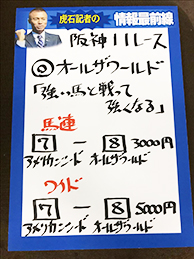 虎石記者の
情報最前線
阪神11レース
◎オールザワールド
「強い馬と戦って
強くなる」
馬連
7 − 8 3000円
アメリカンシード オールザワールド
ワイド
7 − 8 5000円
アメリカンシード オールザワールド